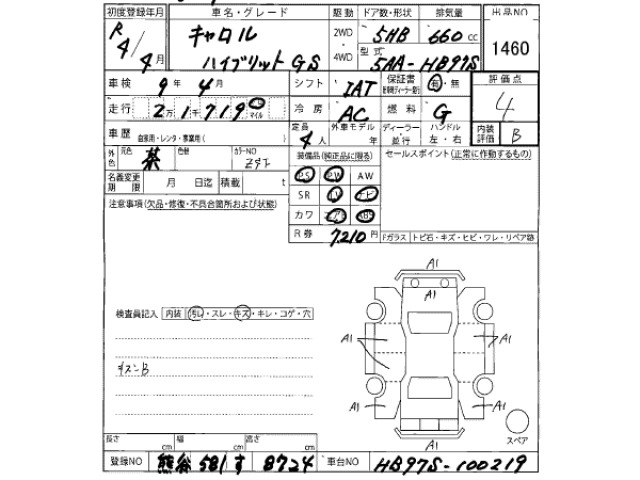 初度登録年月 車名・グレード 駆動 ドア数・形状 排気量 出品NO
R4/4月 キャロル ハイブリットGS 2WD 4WD 5HB 660cc 1460
型式 5AA-HB97S
車検 9年4月 シフト IAT 保証書 有・無 評価点
走行 2万1千719 マイル 冷房 AC 燃料 G 4
車歴 自家用・レンタ・事業用( ) 定員 4人 外車モデル 年 ディーラー・並行 ハンドル 左・右 内装評価 B
外色 元色 茶 色替 カラーNO 装備品(純正品に限る) セールスポイント(正常に作動するもの)
名義変更期限 月 日迄 積載 t PS PW AW
注意事項(欠品・修復・不具合箇所および状態) SR TV ナビ
カワ エアB ABS
R券 7210円 Fガラス トビ石・キズ・ヒビ・ワレ・リペア跡
A1
A1
検査員記入 内装 汚レ・スレ・キズ・キレ・コゲ・穴
A1 A1
キズンB
A1 A1
A1
スペア
長さ cm 幅 cm 高さ cm
登録NO 熊谷 581 す 8724 車台NO HB97S-100219